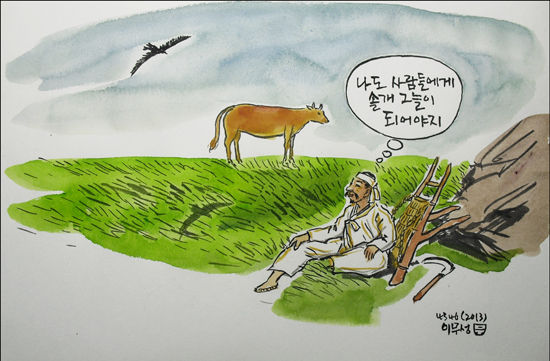 나도 사람들에게
솔개 그늘이
되어야지
4346(2013)
이무성